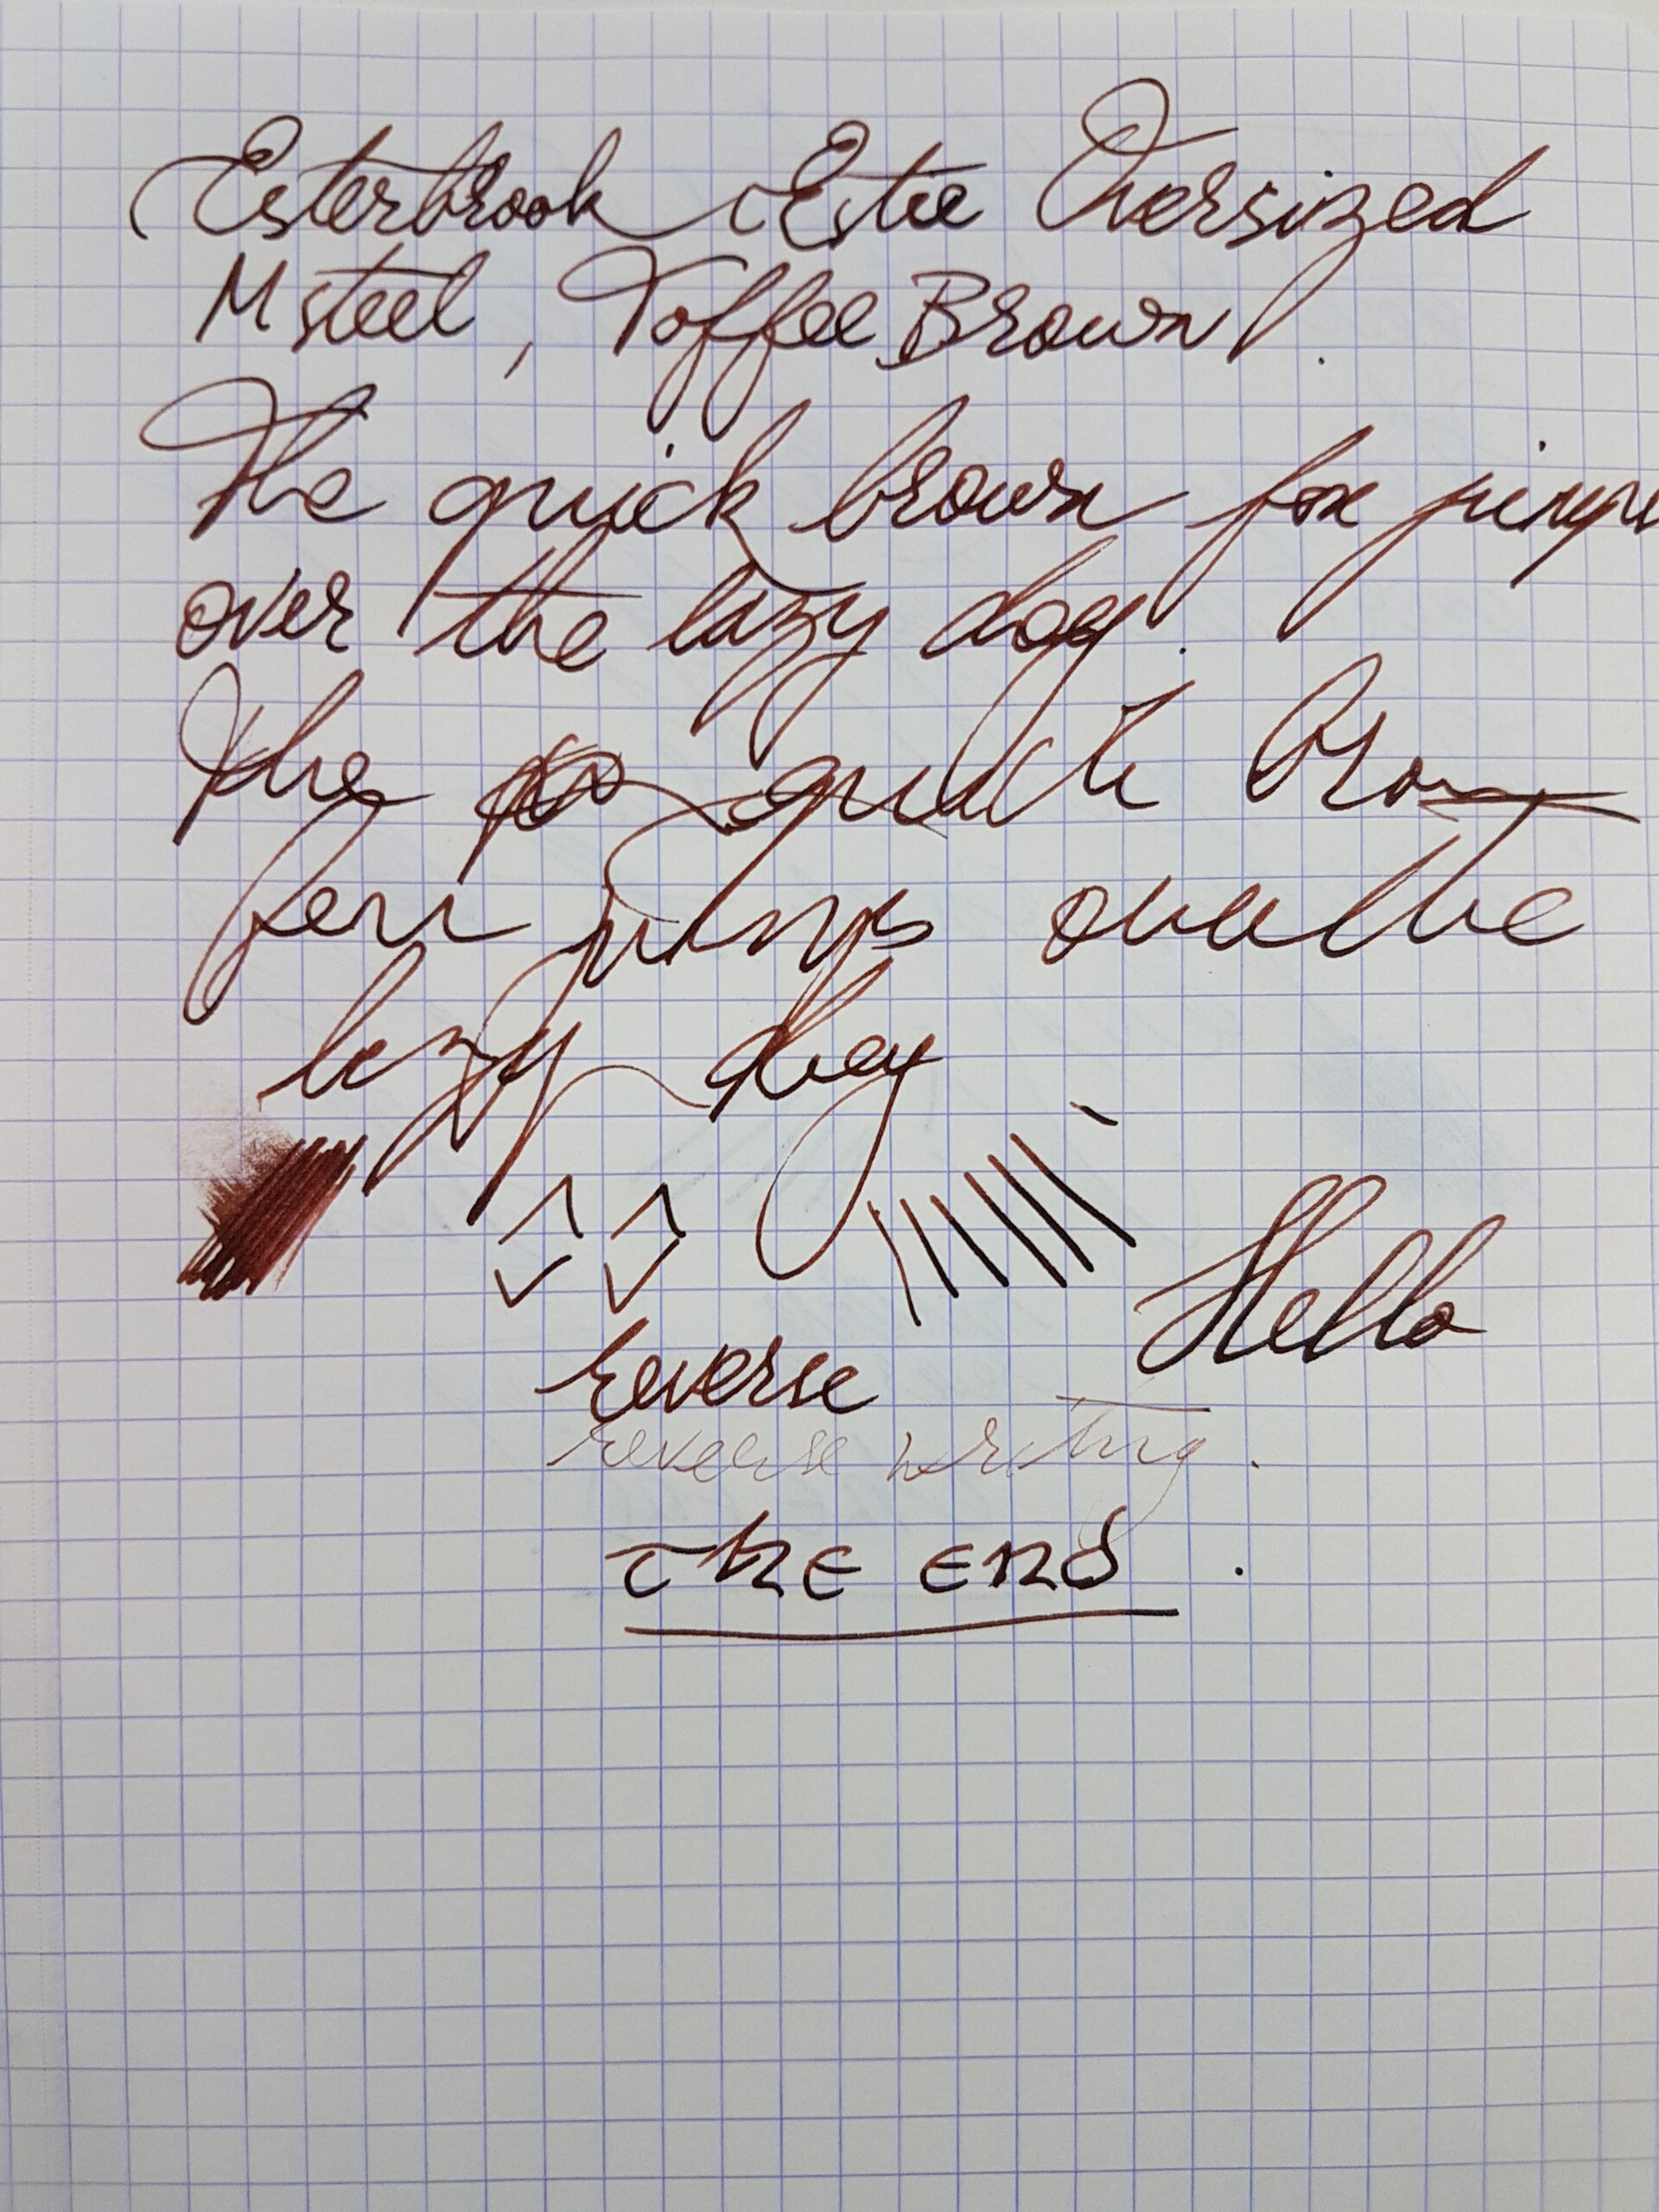 Esterbrook Estie Oversized
M steel, Toffee Brown.
The quick brown fox jumps
over the lazy dog.
The quick brown
fox jumps over the
lazy dog
Hello
reverse
reverse writing.
The end.